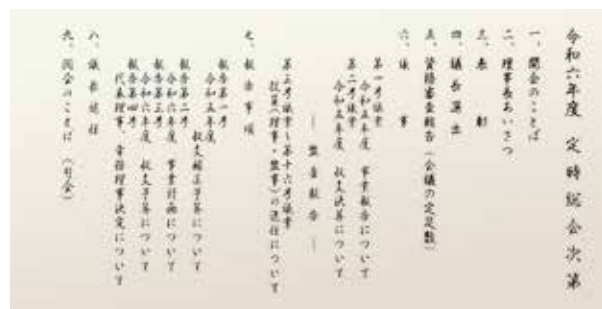 令和六年度 定時総会次第
一、開会のことば
二、理事長あいさつ
三、表彰
四、議長選出
五、資格審査報告(会議の定足数)
六、議事
第一号議案
令和五年度 事業報告について
第二号議案
令和五年度 収支決算について
― 監査報告 ―
第三号議案~第十六号議案
役員(理事・監事)の選任について
七、報告事項
報告第一号
令和五年度 収支補正予算について
報告第二号
令和六年度 事業計画について
報告第三号
令和六年度 収支予算について
報告第四号
代表理事、常務理事決定について
八、議長退任
九、閉会のことば (司会)